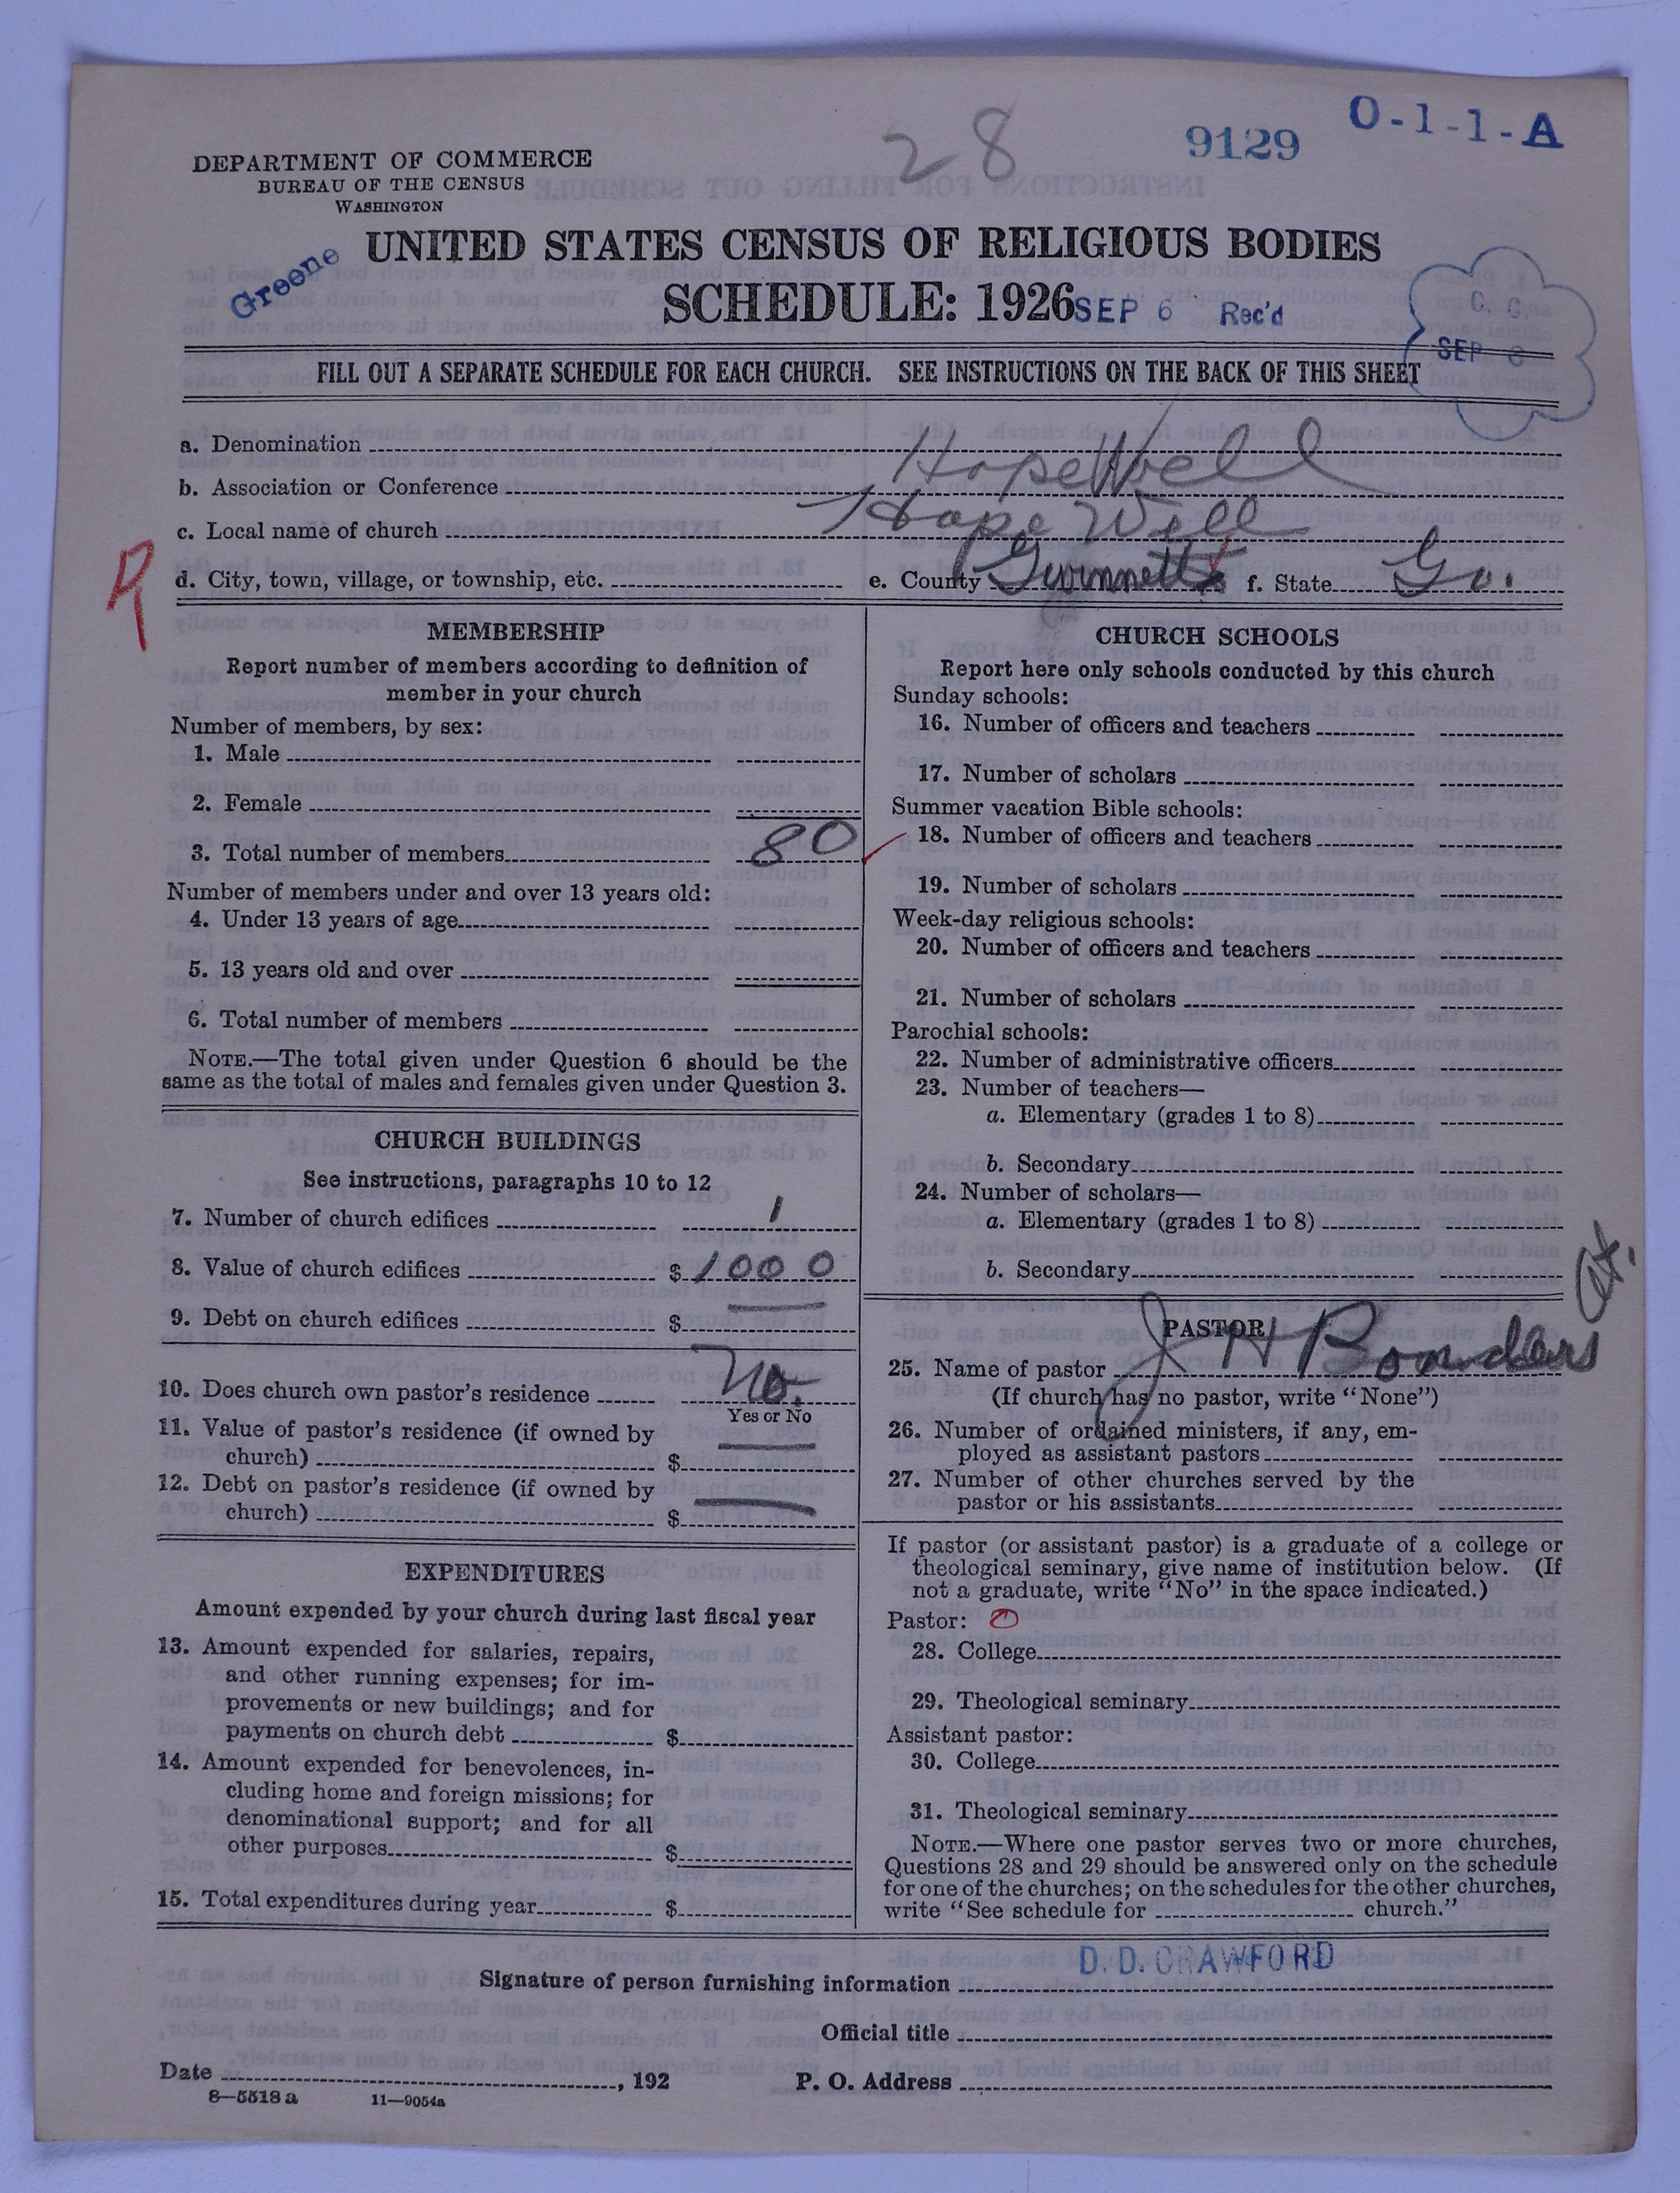 28
9129
O-1-1-A
DEPARTMENT OF COMMERCE
BUREAU OF THE CENSUS
WASHINGTON
Greene
UNITED STATES CENSUS OF RELIGIOUS BODIES
SCHEDULE: 1926
SEP 6 Rec'd
C. C.
SEP 8
FILL OUT A SEPARATE SCHEDULE FOR EACH CHURCH. SEE INSTRUCTIONS ON THE BACK OF THIS SHEET
a. Denomination
b. Association or Conference HopeWell
c. Local name of church Hope Well
R
d. City, town, village, or township, etc. e. County Gwinnett f. State Ga.
MEMBERSHIP
Report number of members according to definition of
member in your church
Number of members, by sex:
1. Male
2. Female
3. Total number of members 80
Number of members under and over 13 years old:
4. Under 13 years of age
5. 13 years old and over
6. Total number of members
NOTE.—The total given under Question 6 should be the
same as the total of males and females given under Question 3.
CHURCH BUILDINGS
See instructions, paragraphs 10 to 12
7. Number of church edifices 1
8. Value of church edifices $ 1000
9. Debt on church edifices $
10. Does church own pastor's residence No.
Yes or No
11. Value of pastor's residence (if owned by
church) $
12. Debt on pastor's residence (if owned by
church) $
EXPENDITURES
Amount expended by your church during last fiscal year
13. Amount expended for salaries, repairs,
and other running expenses; for im-
provements or new buildings; and for
payments on church debt $
14. Amount expended for benevolences, in-
cluding home and foreign missions; for
denominational support; and for all
other purposes $
15. Total expenditures during year $
CHURCH SCHOOLS
Report here only schools conducted by this church
Sunday schools:
16. Number of officers and teachers
17. Number of scholars
Summer vacation Bible schools:
18. Number of officers and teachers
19. Number of scholars
Week-day religious schools:
20. Number of officers and teachers
21. Number of scholars
Parochial schools:
22. Number of administrative officers
23. Number of teachers—
a. Elementary (grades 1 to 8)
b. Secondary
24. Number of scholars—
a. Elementary (grades 1 to 8)
b. Secondary
PASTOR
25. Name of pastor J H
(If church has no pastor, write "None")
26. Number of ordained ministers, if any, em-
ployed as assistant pastors
27. Number of other churches served by the
pastor or his assistants
If pastor (or assistant pastor) is a graduate of a college or
theological seminary, give name of institution below. (If
not a graduate, write "No" in the space indicated.)
Pastor: O
28. College
29. Theological seminary
Assistant pastor:
30. College
31. Theological seminary
NOTE.—Where one pastor serves two or more churches,
Questions 28 and 29 should be answered only on the schedule
for one of the churches; on the schedules for the other churches,
write "See schedule for church."
D. D. CRAWFORD
Signature of person furnishing information
Official title
Date , 192 P. O. Address
8—5518 a 11—9054a